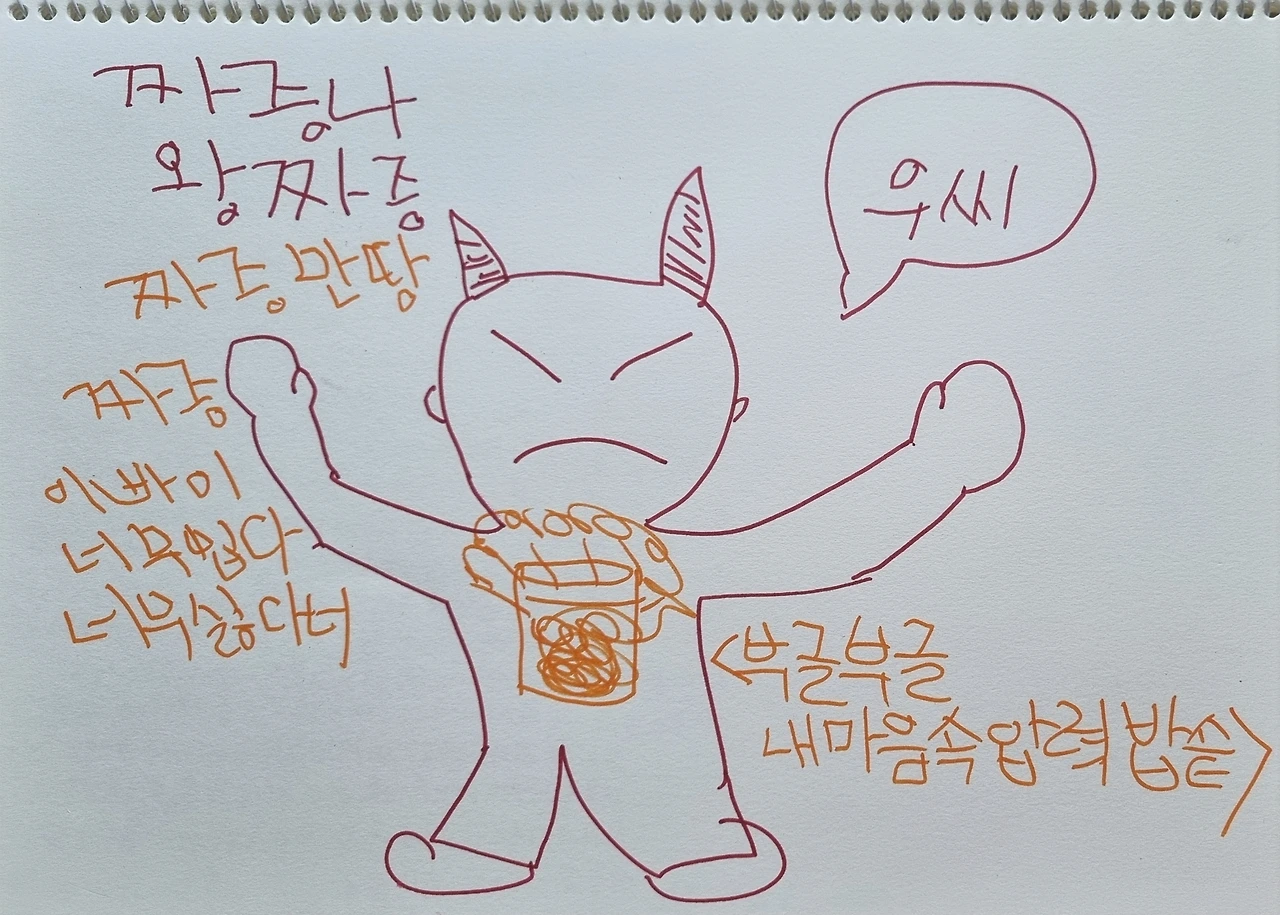 짜증나
왕짜증
짜증 만땅
짜증
이빠이
너무 밉다
너무 싫다너
우씨
<부글부글
내마음속 압력 밥솥>